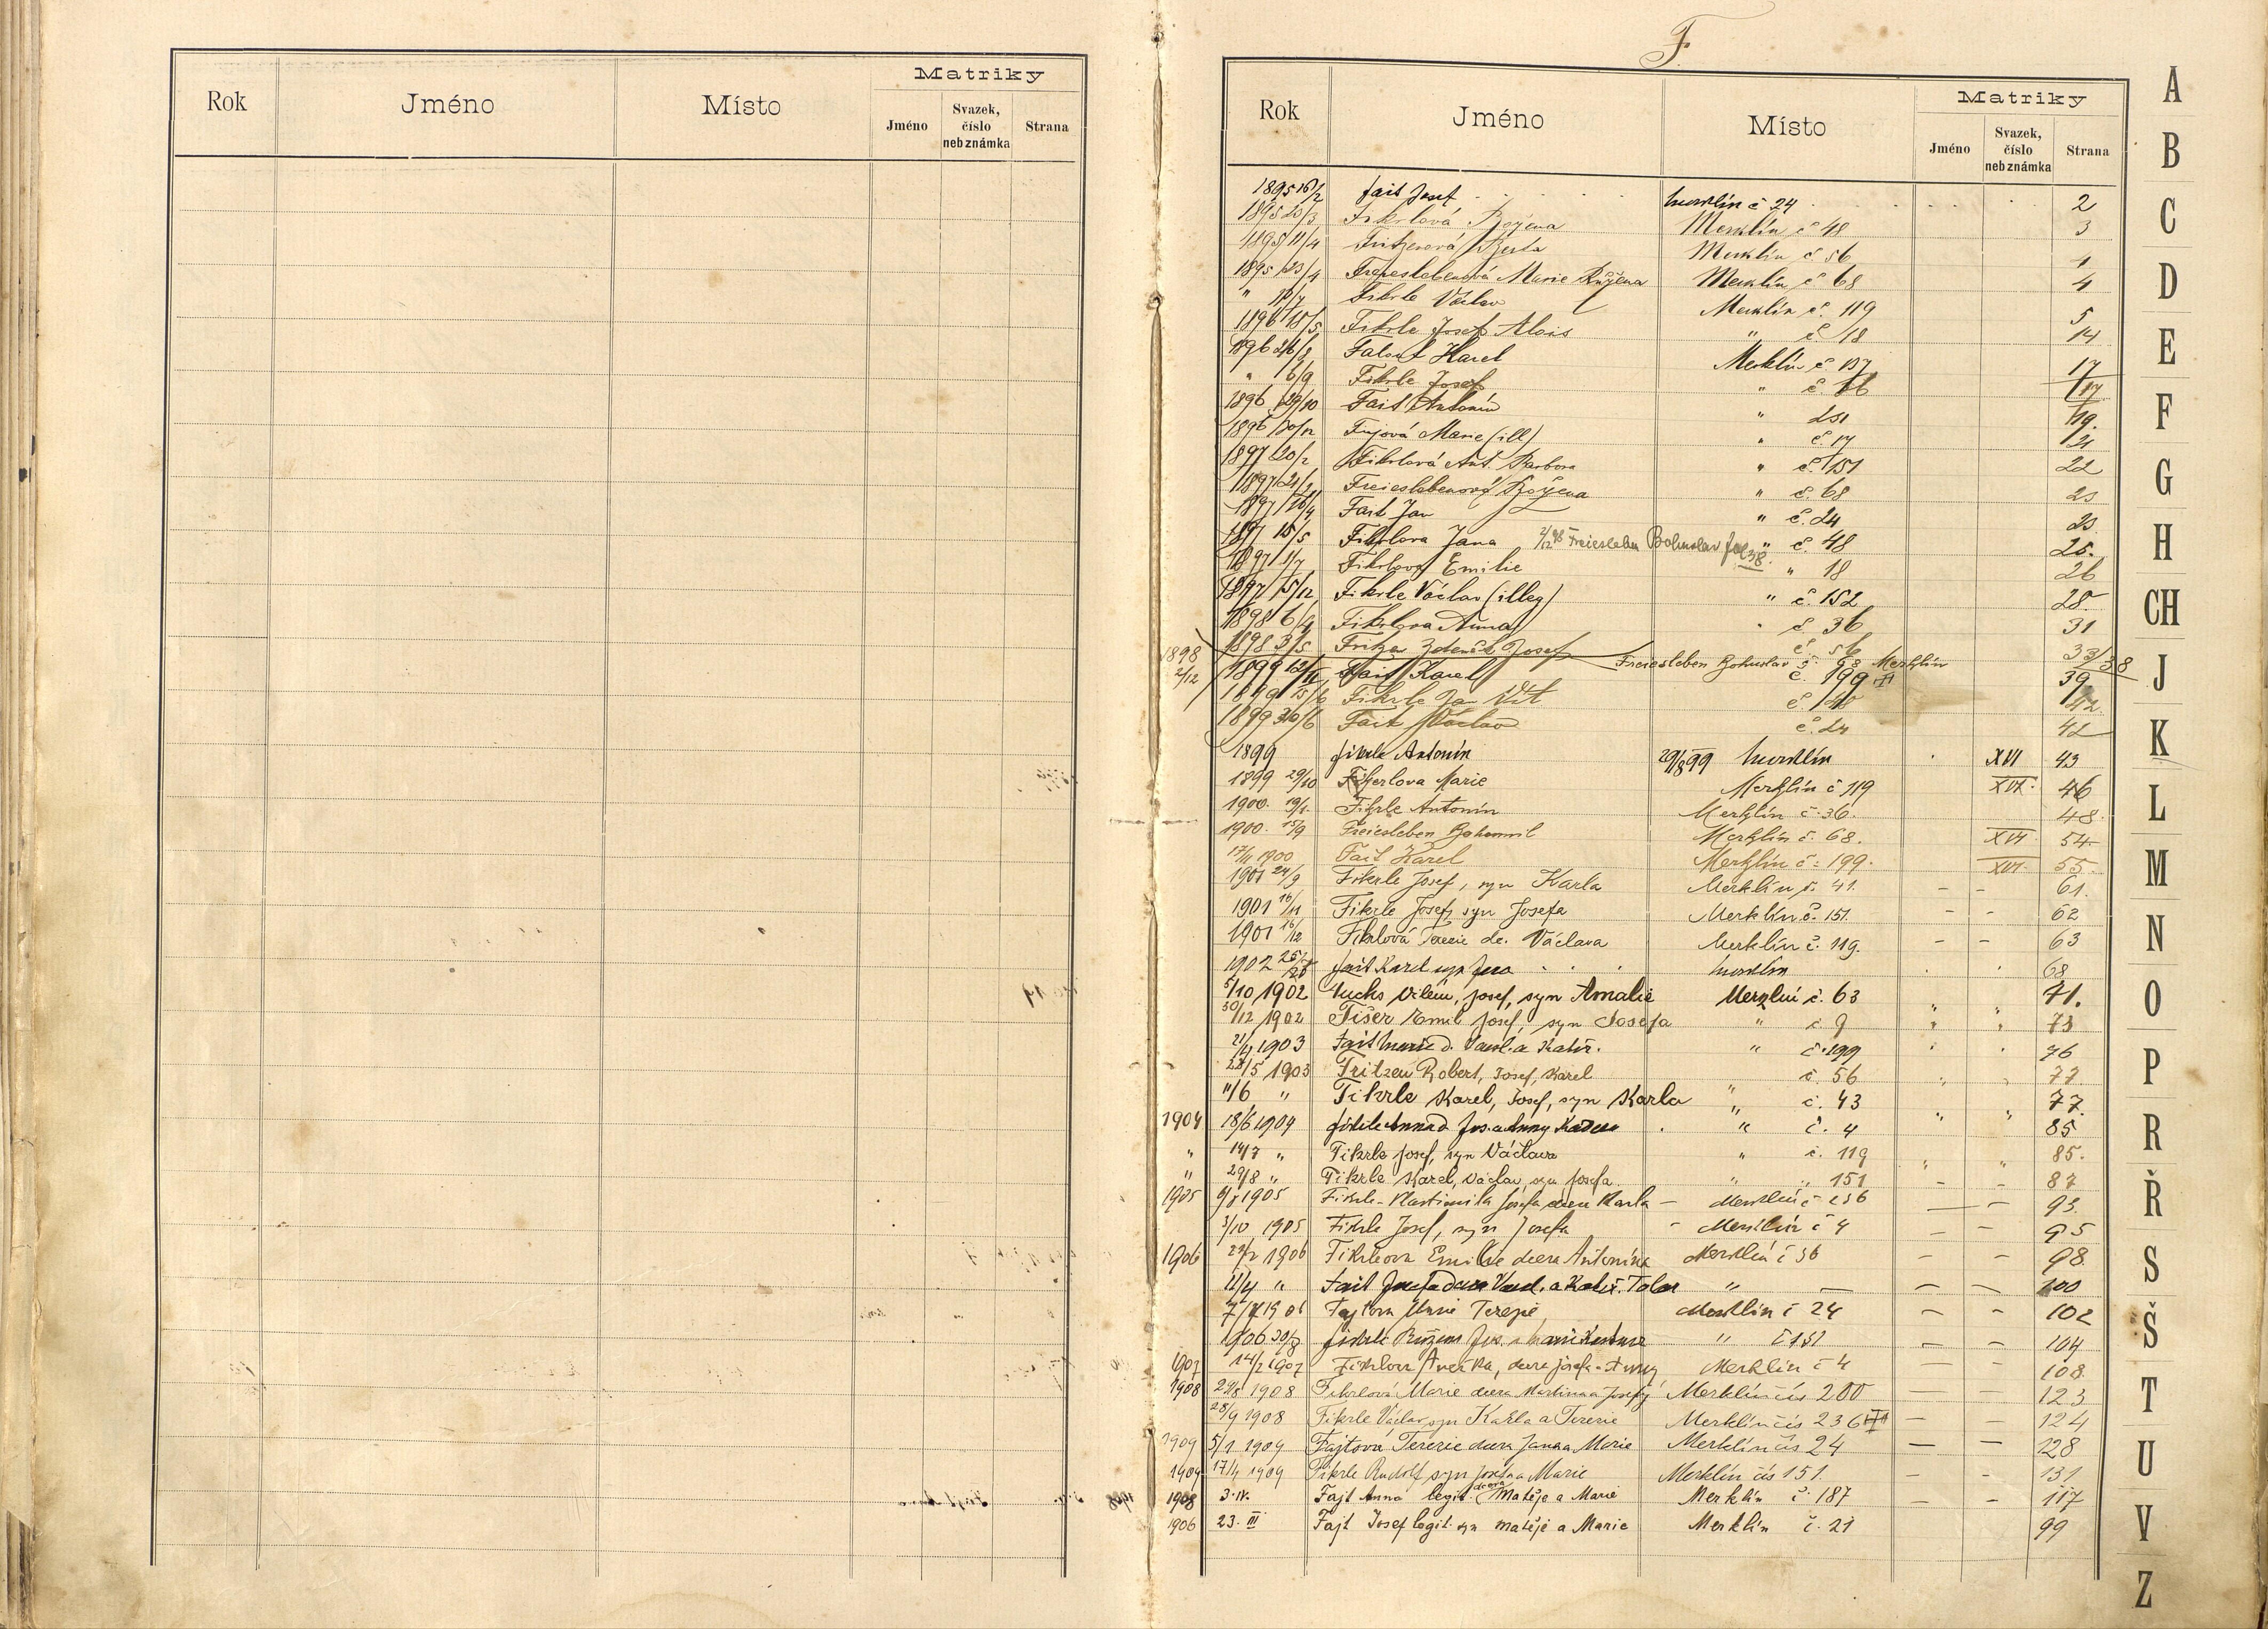 Rok Jméno Místo Matriky
Jméno Svazek, číslo neb známka Strana
F
Rok Jméno Místo Matriky
Jméno Svazek, číslo neb známka Strana
1895 16/2 Fait Josef Merklín č 24 2
1895 25/3 Fikrlová Božena Merklín č 48 3
1895 11/4 Fritzenová Berta Merklín č 56 4
1895 23/4 Freieslebenová Marie Růžena Merklín č 68 4
" /7 Fikrle Václav Merklín č. 119 5
1896 18/5 Fikrle Josef Alois " č 18 14
1896 Karel Merklín č. 137 17
" 6/9 Fikrle Josef " č. 17
1896 29/10 Fait Antonín " 19.
1896 Marie (ill) " č. 17 21
1897 20/2 Fikrlová Ant. Barbora " č. 151 22
1897 Freieslebenová Božena " č. 68 23
1897 /4 Fait Jan " č. 24 23
1897 15/5 Fikrlova Jana 2/12 98 Freiesleben Bohuslav fol 38. " č. 48 25.
1897 11/7 Fikrlova Emilie " 18 26
1897 15/12 Fikrle Václav (illeg) " č. 152 28
1898 6/4 Fikrlova Anna " č. 36 31
1898 3/5 Fritzen Zdeněk Josef č. 56 33
1898 2/12 Freiesleben Bohuslav č. 98 Merklín 38
1899 Fait Karel č. 199 39
1899 15/6 Fikrle Jan Vít č. 42
1899 30/6 Fait Václav č. 24 42
1899 Fikrle Antonín 29/8 99 Merklín XVI 43
1899 29/10 Marie Merklín č 119 XVI. 46
1900. Fikrle Antonín Merklín č. 36. 48.
1900. 15/9 Freiesleben Bohumil Merklín č. 68. XVI 54
17/11 1900 Fait Karel Merklín č. 199. XVI. 55.
1901 24/9 Fikrle Josef, syn Karla Merklín č. 41. - - 61.
1901 16/11 Fikrle Josef, syn Josefa Merklín č. 151. - - 62
1901 16/12 Fikrlová Terezie dc. Václava Merklín č. 119. - - 63
1902 Fait Karel syn Jana Merklín 68
5/10 1902 Fucks Vilém, Josef, syn Amalie Merklín č. 63 71.
30/12 1902 Fišer Emil Josef, syn Josefa " č. 9 73
21/4 1903 Fait Marie d. Karl. a Kateř. " č. 199 76
28/5 1903 Fritzen Robert, Josef, Karel " č. 56 77.
11/6 " Fikrle Karel, Josef, syn Karla " č. 43 77.
1904 18/6 1904 Fikrle Anna d. Jos. a Anny " č. 4 85
" 14/7 " Fikrle Josef, syn Václava " č. 119 85.
" 29/8 " Fikrle Karel, Václav, syn Josefa " " 151 87
1905 1905 Fikrle Vlastimila Josefa dcera Karla - Merklín č 236 93.
3/10 1905 Fikrle Josef, syn Josefa - Merklín č 4 95
1906 1906 Fikrleova Emilie dcera Antonína Merklín č 36 98
11/4 " Fait Josefa dcera a Kateř. " 100
1906 Fajtova Marie Terezie Merklín č 24 102
1906 30/8 Fikrle Růžena Jos. " č 151 104
1907 14/2 1907 Fikrlova Anežka, dcera Josefa a Anny Merklín č 4 108.
1908 1908 Fikrlová Marie dcera Martina a Josefy Merklín čís 200 123
28/9 1908 Fikrle Václav syn Karla a Terezie Merklín čís 236 124
1909 5/1 1909 Fajtová Terezie dcera Jana a Marie Merklín čís 24 128
1909 17/4 1909 Fikrle Rudolf syn Josefa a Marie Merklín čís 151. 131
1908 3. IV. Fajt Anna legit. dcera Matěje a Marie Merklín č. 187 117
1906 23. III Fajt Josef legit. syn Matěje a Marie Merklín č. 21 99
A
B
C
D
E
F
G
H
CH
J
K
L
M
N
O
P
R
Ř
S
Š
T
U
V
Z